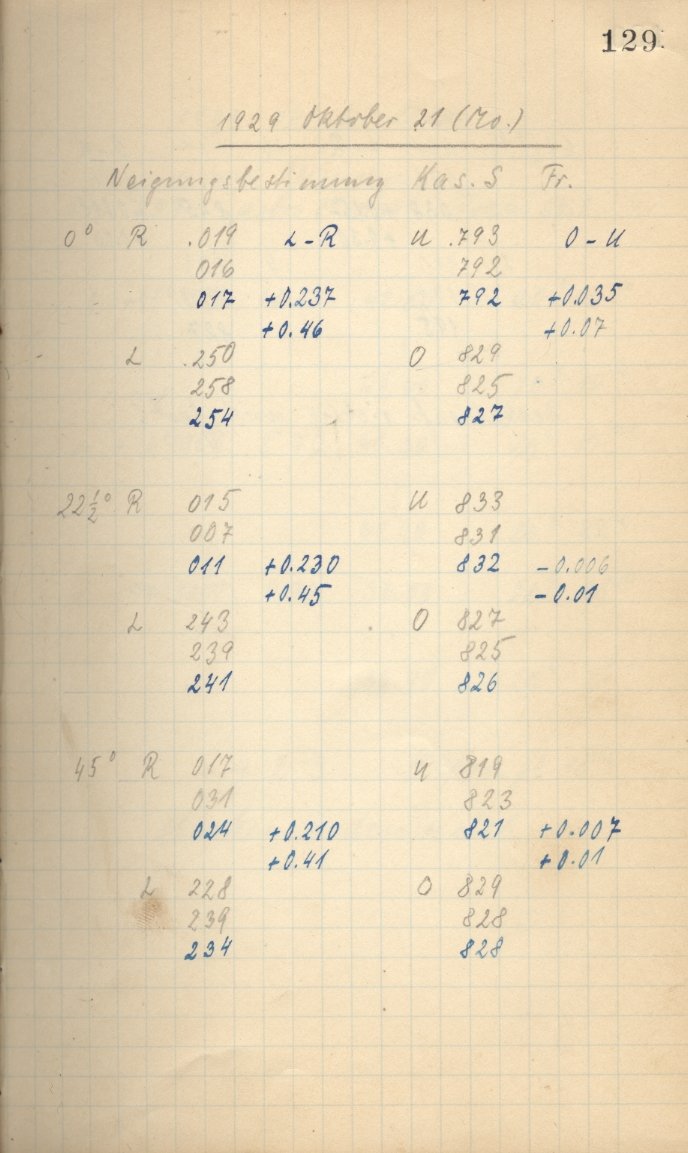 129.
1929 Oktober 21 (Mo.)
Neigungsbestimmung Kas. S Fr.
0° R .019 L-R U .793 O-U
016 792
017 +0.237 792 +0.035
+0.46 +0.07
L .250 O 829
258 825
254 827
22½° R 015 U 833
007 831
011 +0.230 832 -0.006
+0.45 -0.01
L 243 O 827
239 825
241 826
45° R 017 U 819
031 823
024 +0.210 821 +0.007
+0.41 +0.01
L 228 O 829
239 828
234 828